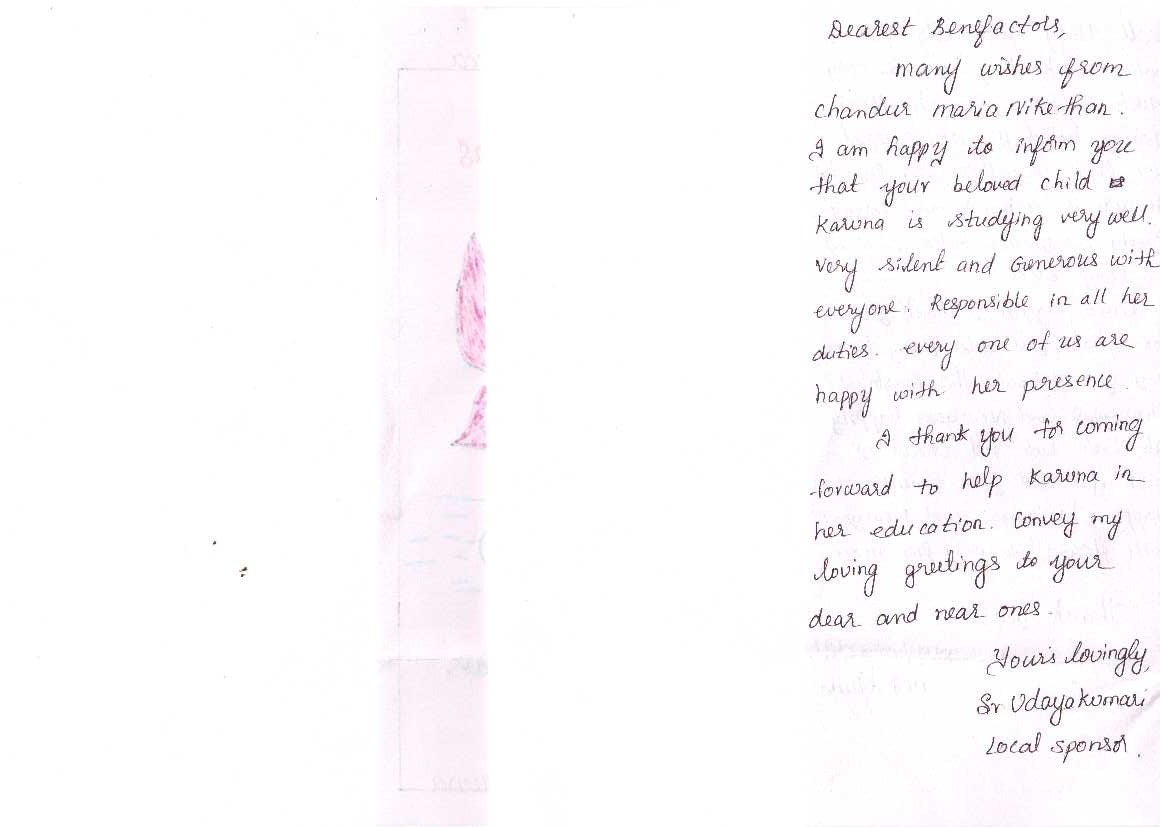 Dearest Benefactors,
many wishes from
chandur maria Nikethan.
I am happy to inform you
that your beloved child
Karuna is studying very well.
Very silent and Generous with
everyone. Responsible in all her
duties. every one of us are
happy with her presence.
I thank you for coming
forward to help Karuna in
her education. Convey my
loving greetings to your
dear and near ones.
Your's lovingly,
Sr Udayakumari
Local sponsor.